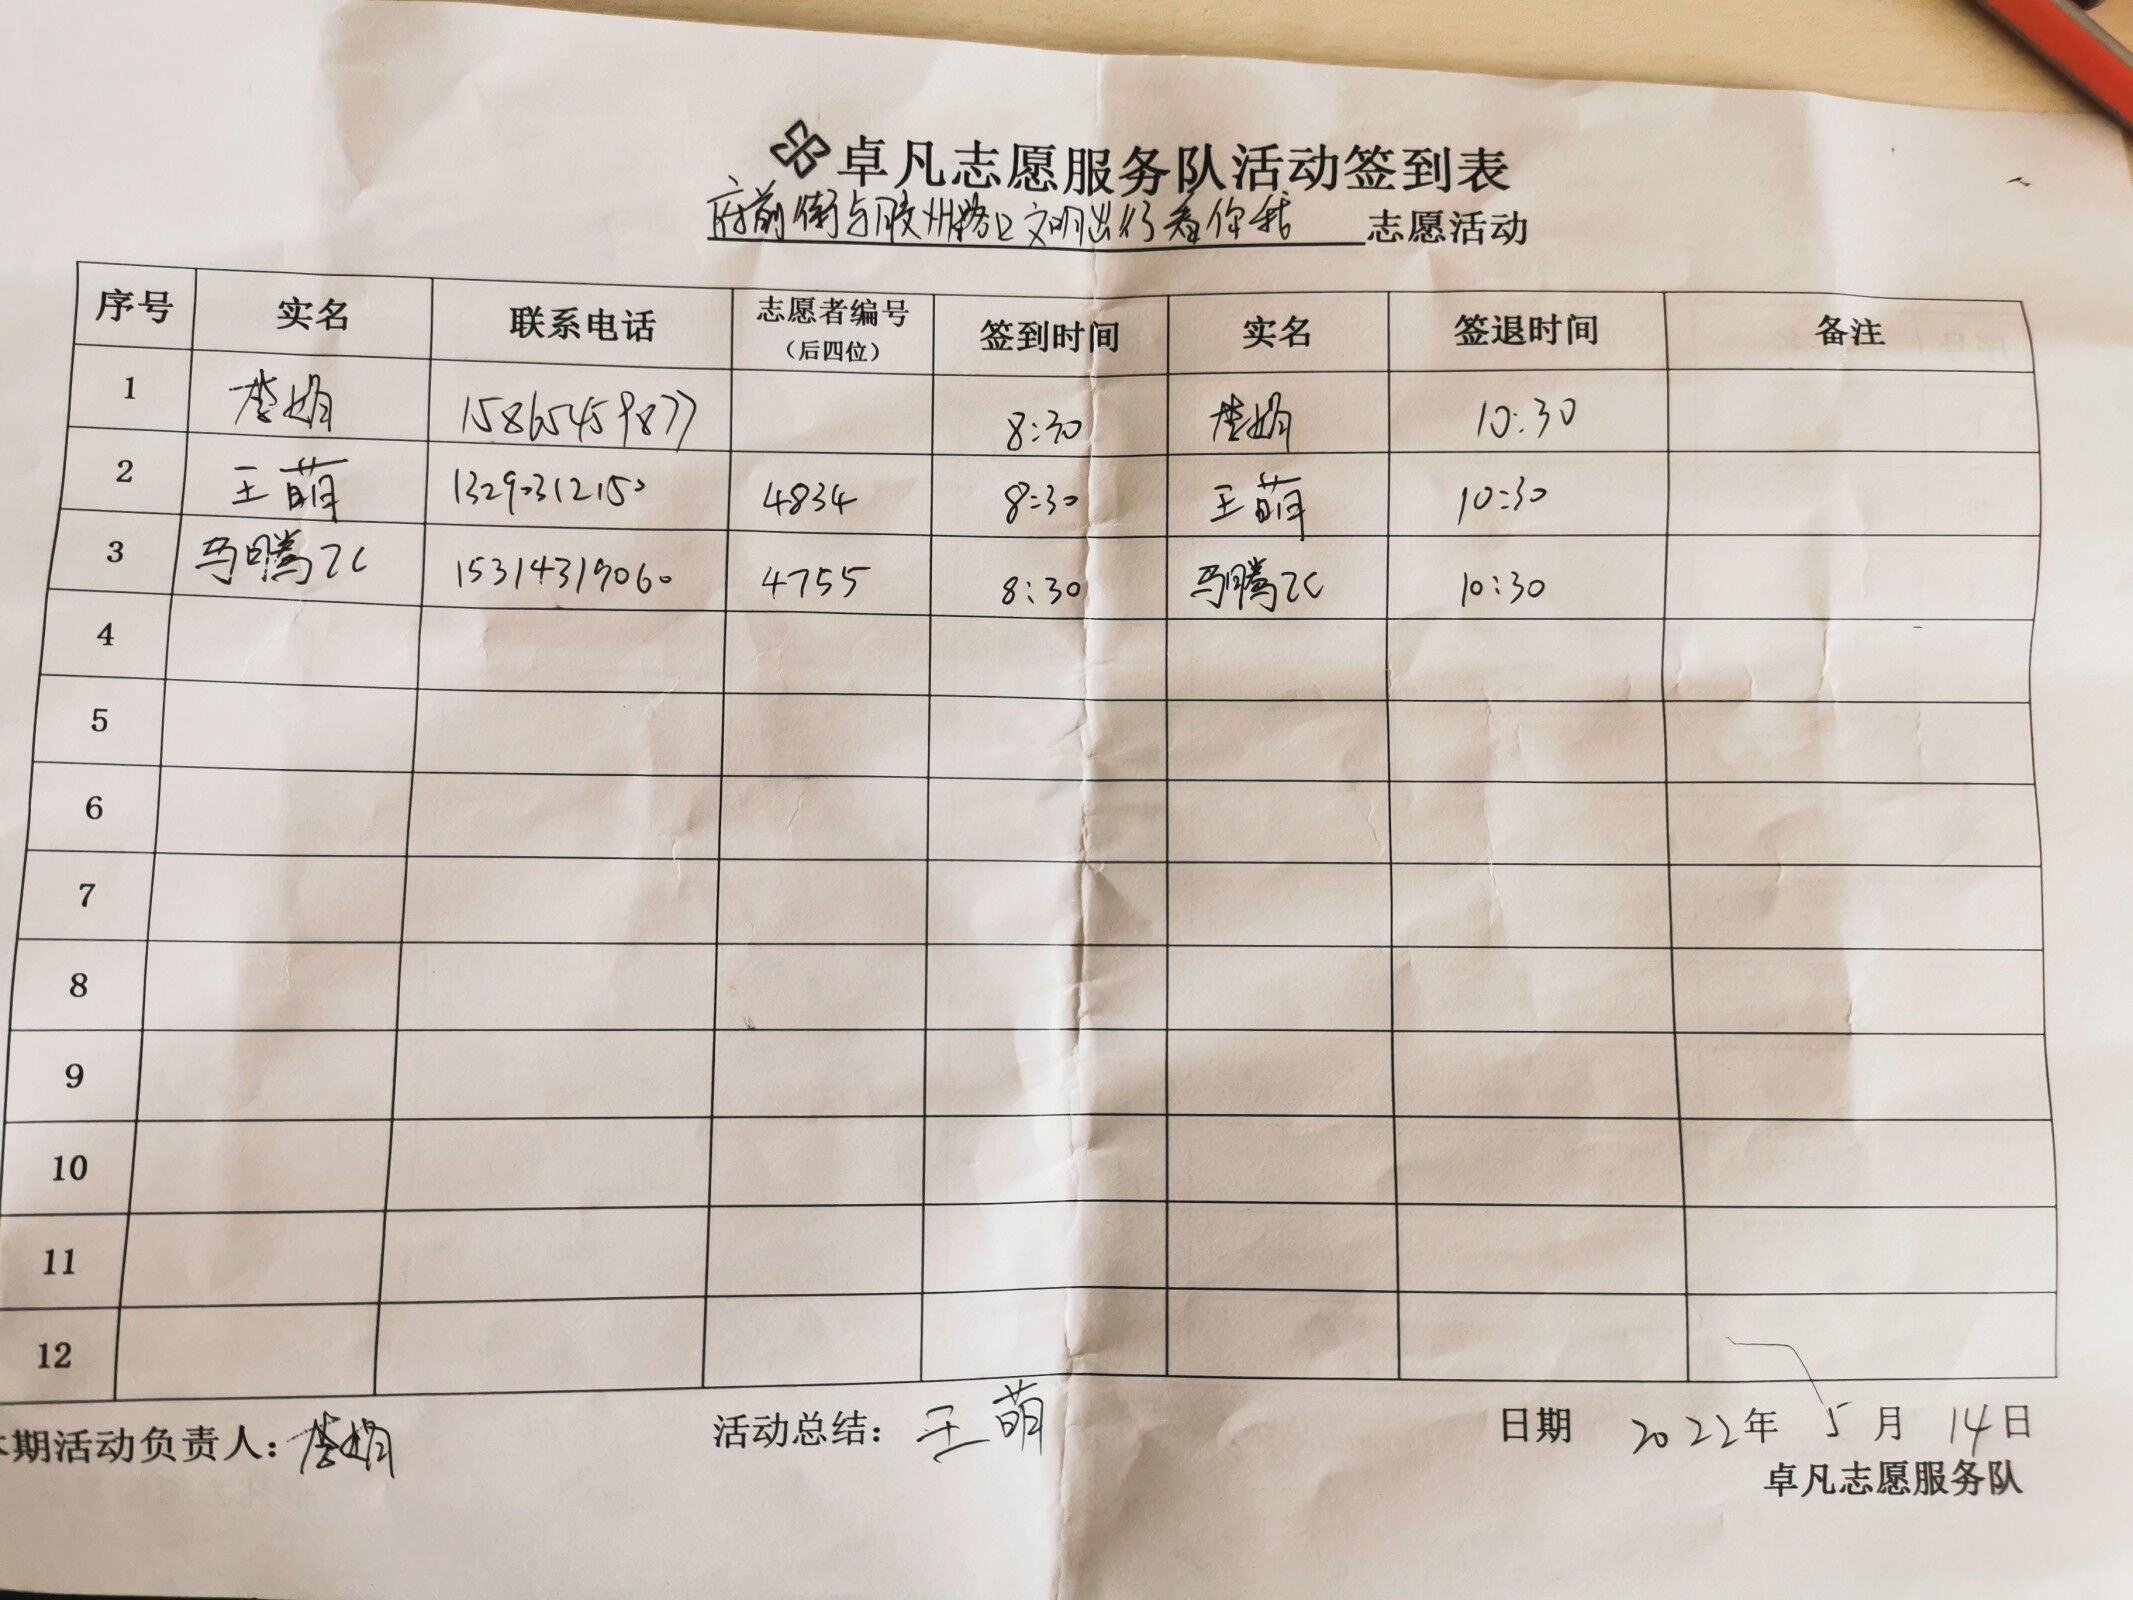 卓凡志愿服务队活动签到表
府前街与胶州路口文明出行看你我 志愿活动
序号 实名 联系电话 志愿者编号（后四位） 签到时间 实名 签退时间 备注
1 李娟 15865459877 8:30 李娟 10:30
2 王萌 13290312150 4834 8:30 王萌 10:30
3 马腾飞 15314319060 4755 8:30 马腾飞 10:30
4
5
6
7
8
9
10
11
12
本期活动负责人：李娟 活动总结：王萌 日期 2022年 5月 14日
卓凡志愿服务队